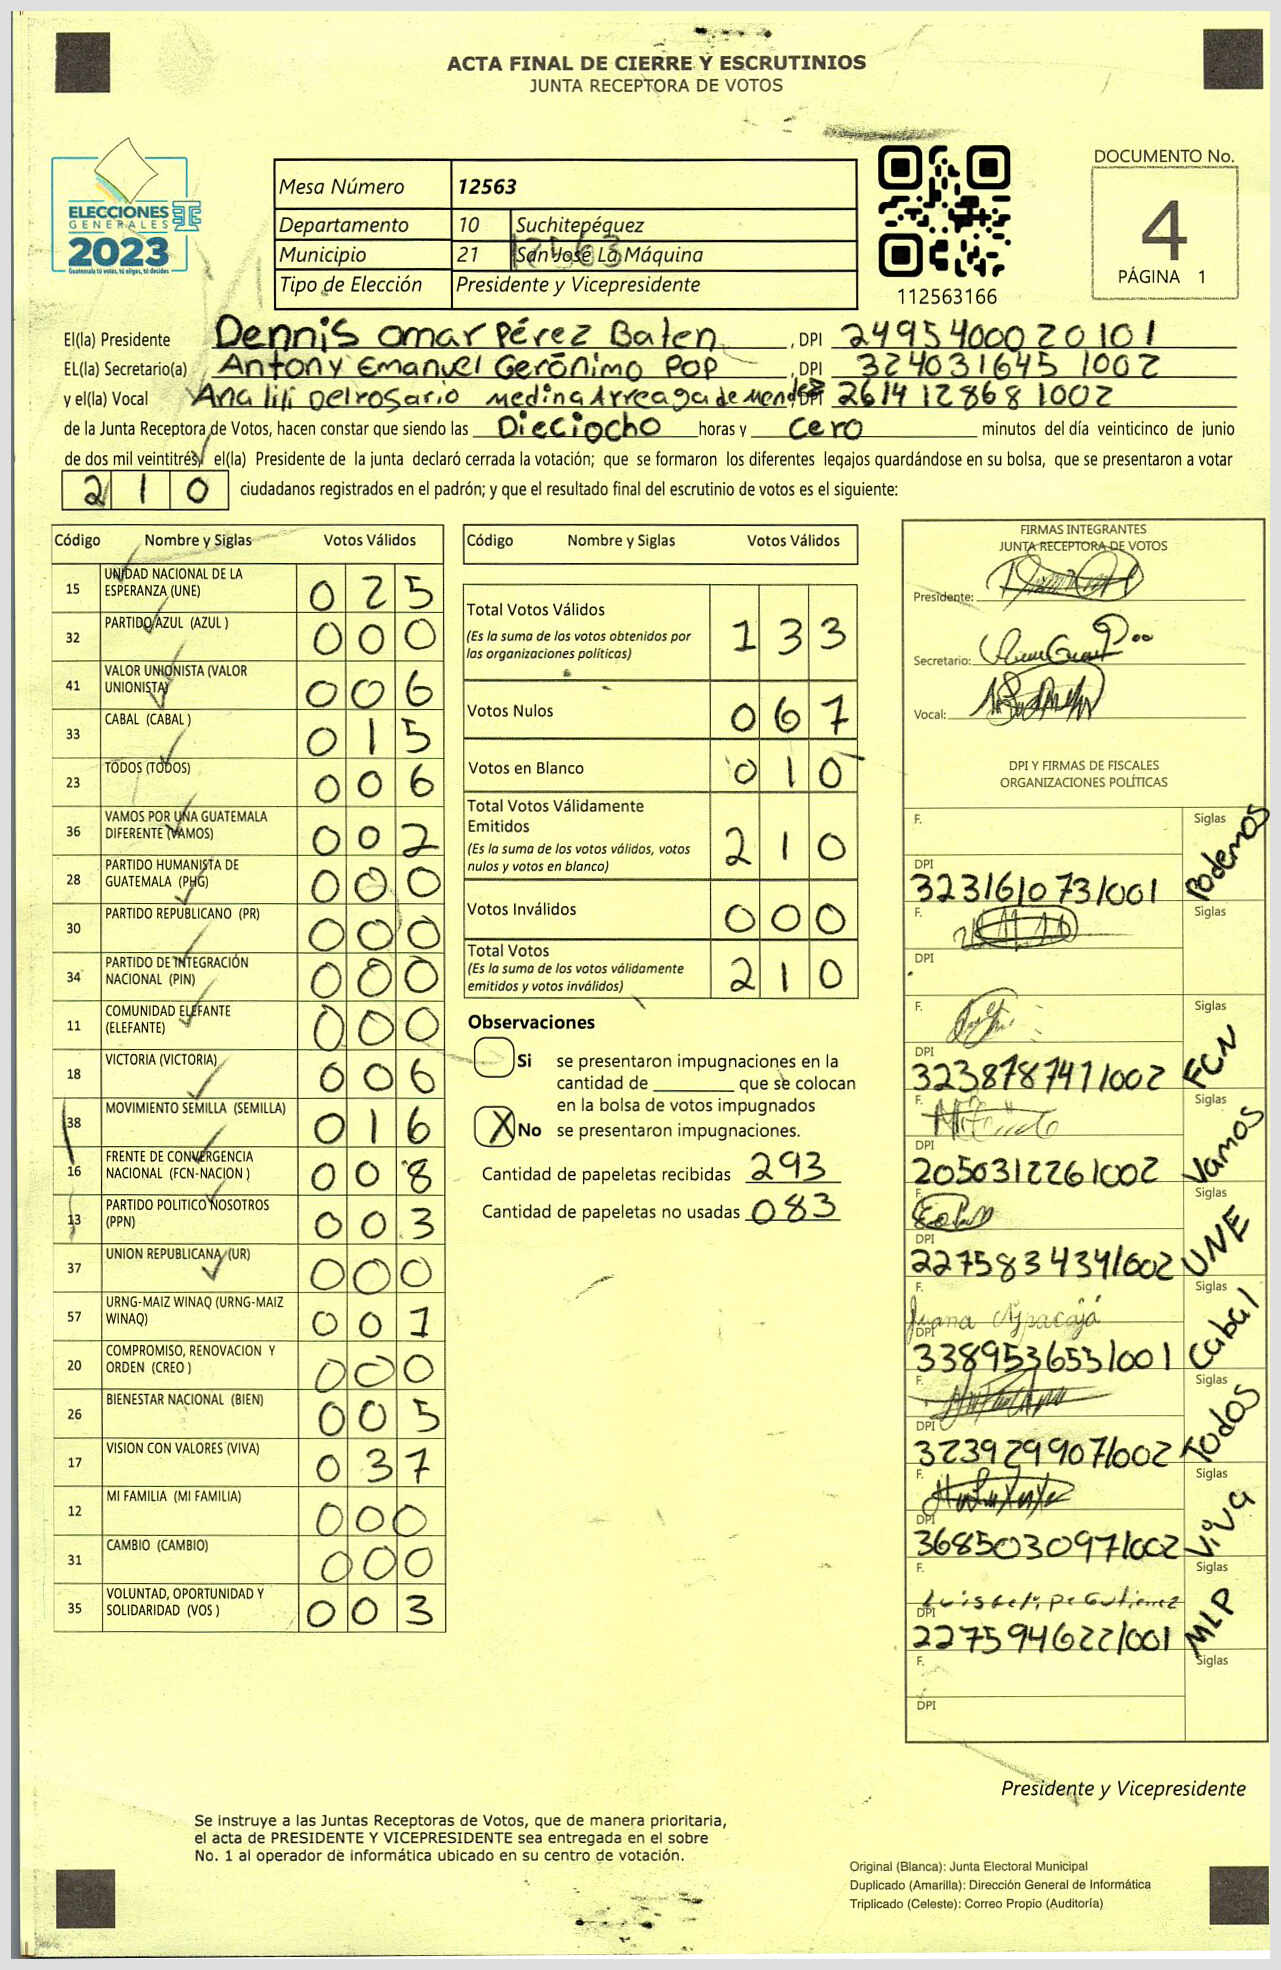 ACTA FINAL DE CIERRE Y ESCRUTINIOS
JUNTA RECEPTORA DE VOTOS
ELECCIONES
GENERALES
2023
Guatemala tú votas, tú eliges, tú decides
Mesa Número 12563
Departamento 10 Suchitepéquez
Municipio 21 San José La Máquina
12563
Tipo de Elección Presidente y Vicepresidente
112563166
DOCUMENTO No.
4
PÁGINA 1
El(la) Presidente Dennis Omar Pérez Baten, DPI 2495400020101
EL(la) Secretario(a) Antony Emanuel Gerónimo Pop, DPI 3240316451002
y el(la) Vocal Ana lili Delrosario Medina Arreaga de Mendez DPI 2614128681002
de la Junta Receptora de Votos, hacen constar que siendo las Dieciocho horas y cero minutos del día veinticinco de junio
de dos mil veintitrés, el(la) Presidente de la junta declaró cerrada la votación; que se formaron los diferentes legajos guardándose en su bolsa, que se presentaron a votar
210 ciudadanos registrados en el padrón; y que el resultado final del escrutinio de votos es el siguiente:
Código Nombre y Siglas Votos Válidos
15 UNIDAD NACIONAL DE LA ESPERANZA (UNE) 025
32 PARTIDO AZUL (AZUL ) 000
41 VALOR UNIONISTA (VALOR UNIONISTA) 006
33 CABAL (CABAL ) 015
23 TODOS (TODOS) 006
36 VAMOS POR UNA GUATEMALA DIFERENTE (VAMOS) 002
28 PARTIDO HUMANISTA DE GUATEMALA (PHG) 000
30 PARTIDO REPUBLICANO (PR) 000
34 PARTIDO DE INTEGRACIÓN NACIONAL (PIN) 000
11 COMUNIDAD ELEFANTE (ELEFANTE) 000
18 VICTORIA (VICTORIA) 006
38 MOVIMIENTO SEMILLA (SEMILLA) 016
16 FRENTE DE CONVERGENCIA NACIONAL (FCN-NACION ) 008
13 PARTIDO POLITICO NOSOTROS (PPN) 003
37 UNION REPUBLICANA (UR) 000
57 URNG-MAIZ WINAQ (URNG-MAIZ WINAQ) 001
20 COMPROMISO, RENOVACION Y ORDEN (CREO ) 000
26 BIENESTAR NACIONAL (BIEN) 005
17 VISION CON VALORES (VIVA) 037
12 MI FAMILIA (MI FAMILIA) 000
31 CAMBIO (CAMBIO) 000
35 VOLUNTAD, OPORTUNIDAD Y SOLIDARIDAD (VOS ) 003
Código Nombre y Siglas Votos Válidos
Total Votos Válidos 133
(Es la suma de los votos obtenidos por
las organizaciones políticas)
Votos Nulos 067
Votos en Blanco 010
Total Votos Válidamente
Emitidos 210
(Es la suma de los votos válidos, votos
nulos y votos en blanco)
Votos Inválidos 000
Total Votos 210
(Es la suma de los votos válidamente
emitidos y votos inválidos)
Observaciones
Si se presentaron impugnaciones en la
cantidad de ________ que se colocan
en la bolsa de votos impugnados
X No se presentaron impugnaciones.
Cantidad de papeletas recibidas 293
Cantidad de papeletas no usadas 083
FIRMAS INTEGRANTES
JUNTA RECEPTORA DE VOTOS
Presidente:
Secretario:
Vocal:
DPI Y FIRMAS DE FISCALES
ORGANIZACIONES POLÍTICAS
F. Siglas Podemos
DPI 3231610731001
F. Siglas
DPI
F. Siglas FCN
DPI 3238787471002
F. Siglas Vamos
DPI 2050312261002
F. Siglas UNE
DPI 2275834341602
F. Juana Ajpacajá Siglas Cabal
DPI 3389536551001
F. Siglas Todos
DPI 3239299071002
F. Siglas Viva
DPI 3685030971002
F. Siglas MLP
DPI 2275946221001
F. Siglas
DPI
Presidente y Vicepresidente
Se instruye a las Juntas Receptoras de Votos, que de manera prioritaria,
el acta de PRESIDENTE Y VICEPRESIDENTE sea entregada en el sobre
No. 1 al operador de informática ubicado en su centro de votación.
Original (Blanca): Junta Electoral Municipal
Duplicado (Amarilla): Dirección General de Informática
Triplicado (Celeste): Correo Propio (Auditoría)